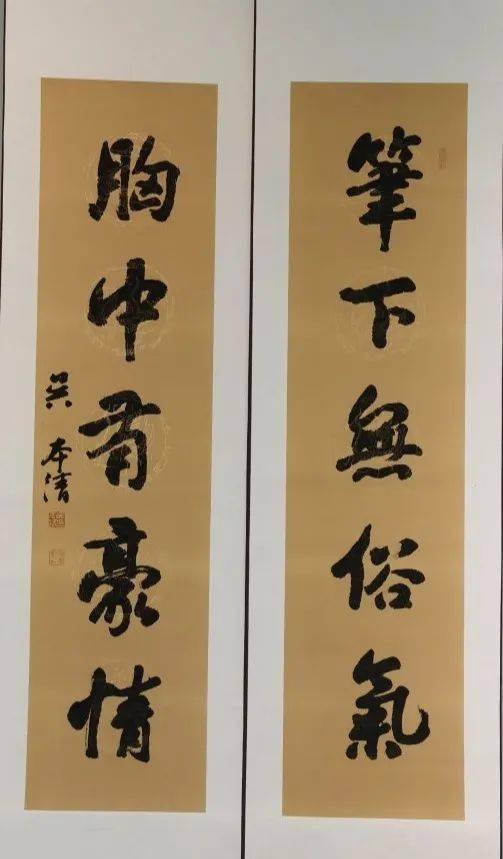 筆下無俗氣
胸中有豪情
吴本清